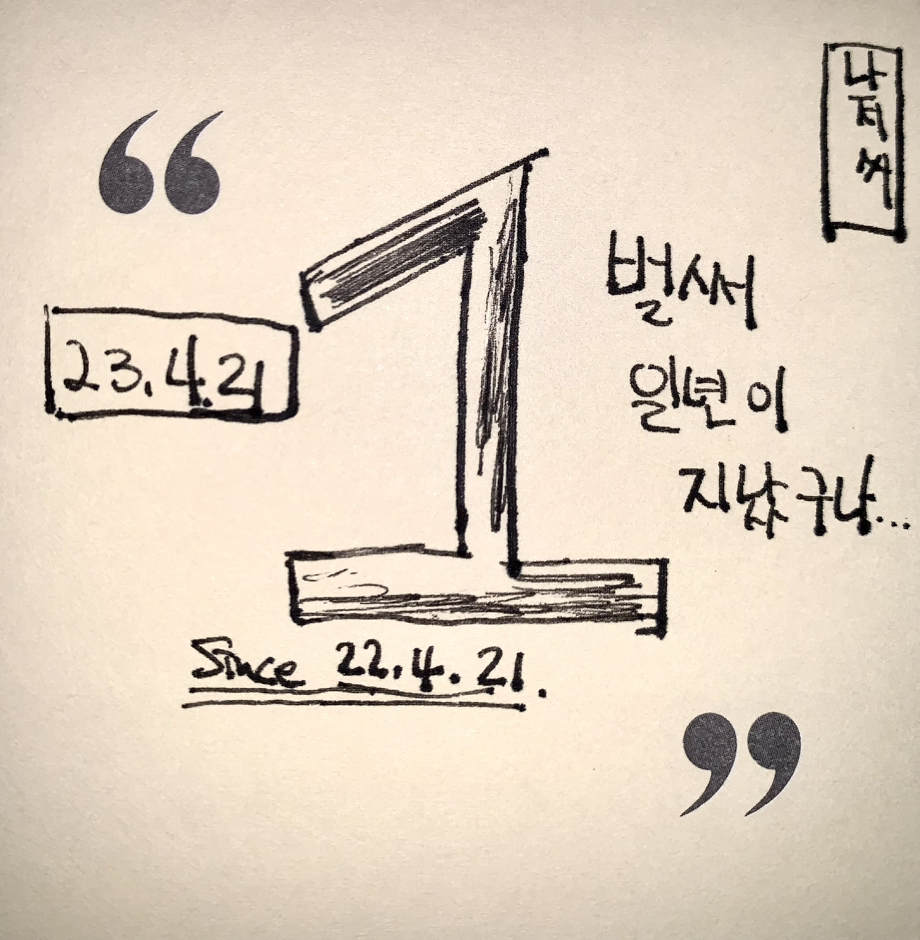 “
23.4.21
1
벌써
일년이
지났구나...
Since 22.4.21.
”